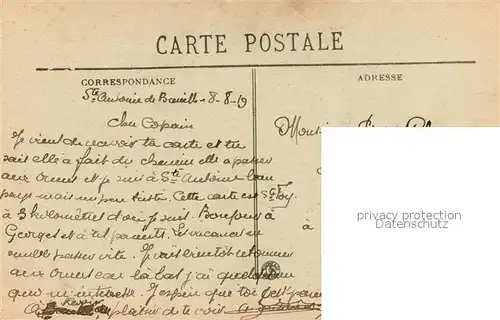 CARTE POSTALE
CORRESPONDANCE
ADRESSE
Ste Antoine de Breuilh. 8-8-19
Cher Copain
Je vient de recevoir ta carte et tu
sait elle a fait du chemin elle a passer
aux Ormes et je suis à Ste Antoine beau
pays mais un peu triste. Cette carte est Ste Foy.
à 3 kilomètres d'où je suis. Bonjour à
Georges et à tes parents. Les vacances me
semble passer vite. Je vait bientôt retourner
aux Ormes car là bas j'ai quelque
qui m'intéresse. J'espère que toi
plaisir de te voir
Monsieur
à
privacy protection
Datenschutz